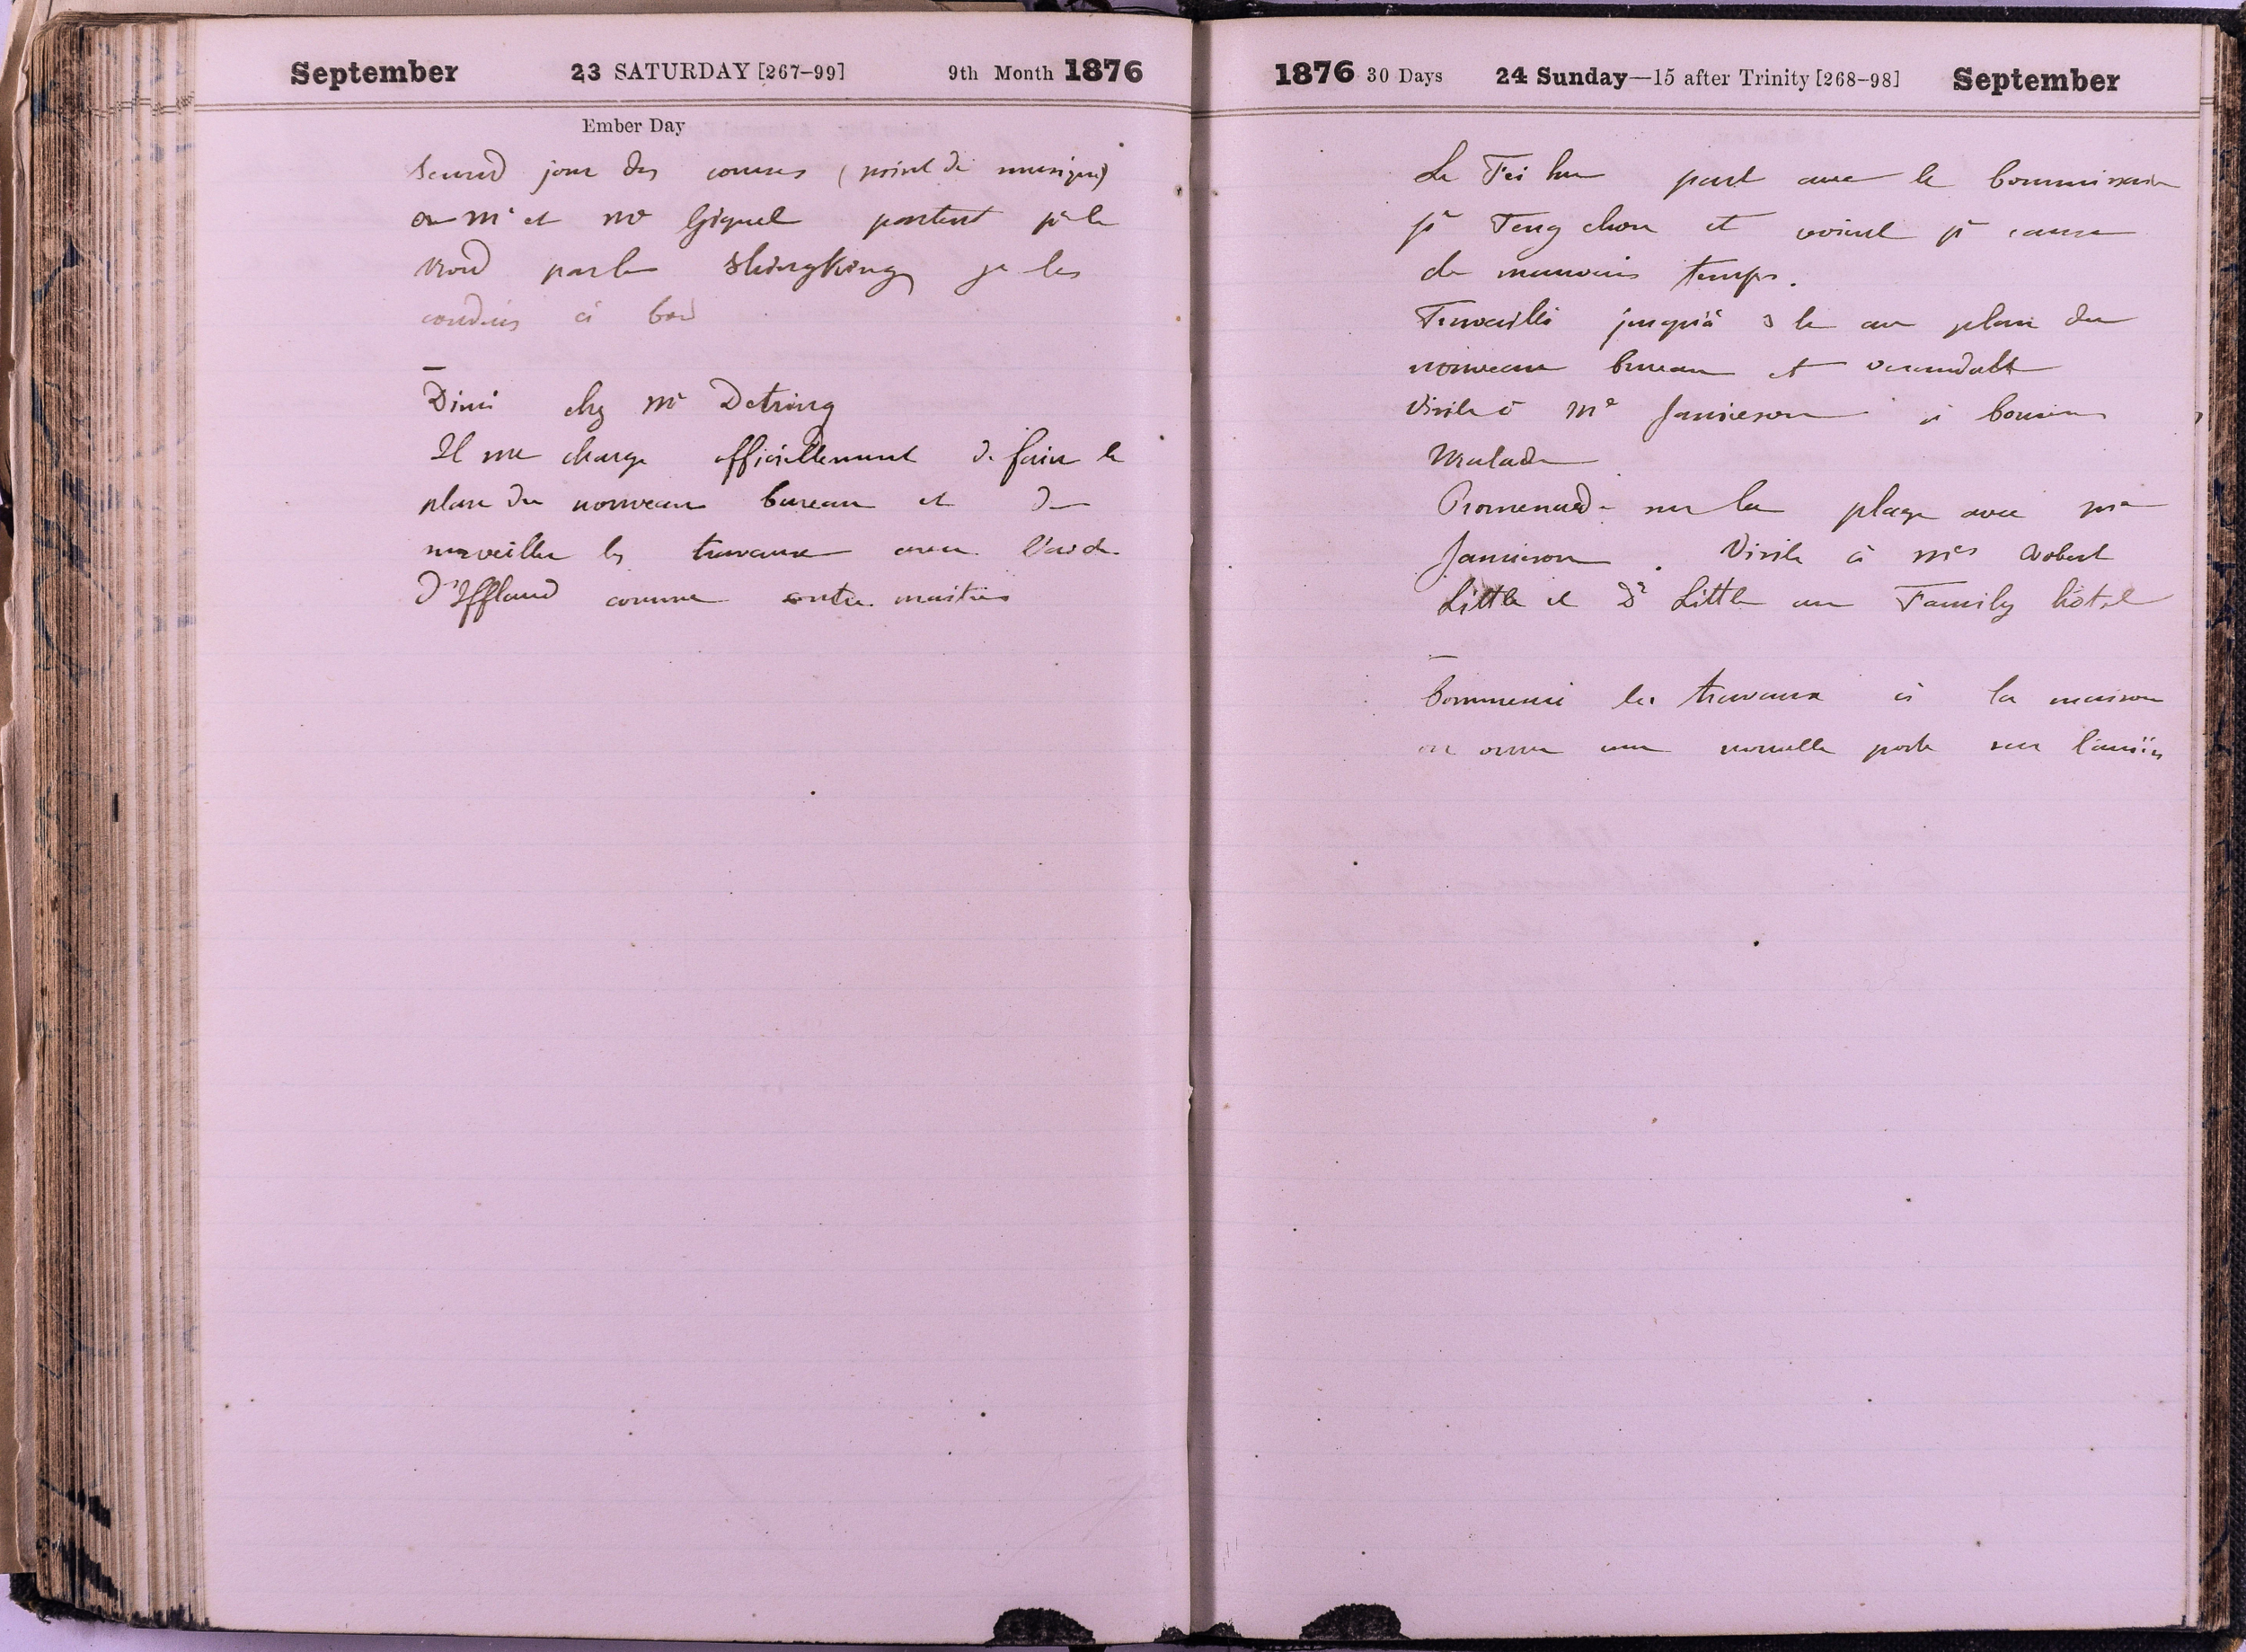 September 23 SATURDAY [267-99] 9th Month 1876
Ember Day
Second jour des courses (point de musique)
On Mr et Me Giquel partent pr le
Nord par le Shingking je les
conduis à bord
Diné chez Mr Detring
Il me charge officiellement de faire le
plan du nouveau bureau et de
surveiller les travaux avec l'aide
d'Iffland comme contre maître
1876 30 Days 24 Sunday—15 after Trinity [268-98] September
Le Fei hu part avec le Commissaire
pr Teng chou et revient pr cause
de mauvais temps.
Travaillé jusqu'à 3 h au plan du
nouveau bureau et verandah
Visite à Me Jamieson à
Malade
Promenade sur la plage avec Me
Jamieson. Visite à Mrs Robert
Little et Dr Little au Family hôtel
Commencé les travaux à la maison
on ouvre une nouvelle porte sur l'arrière